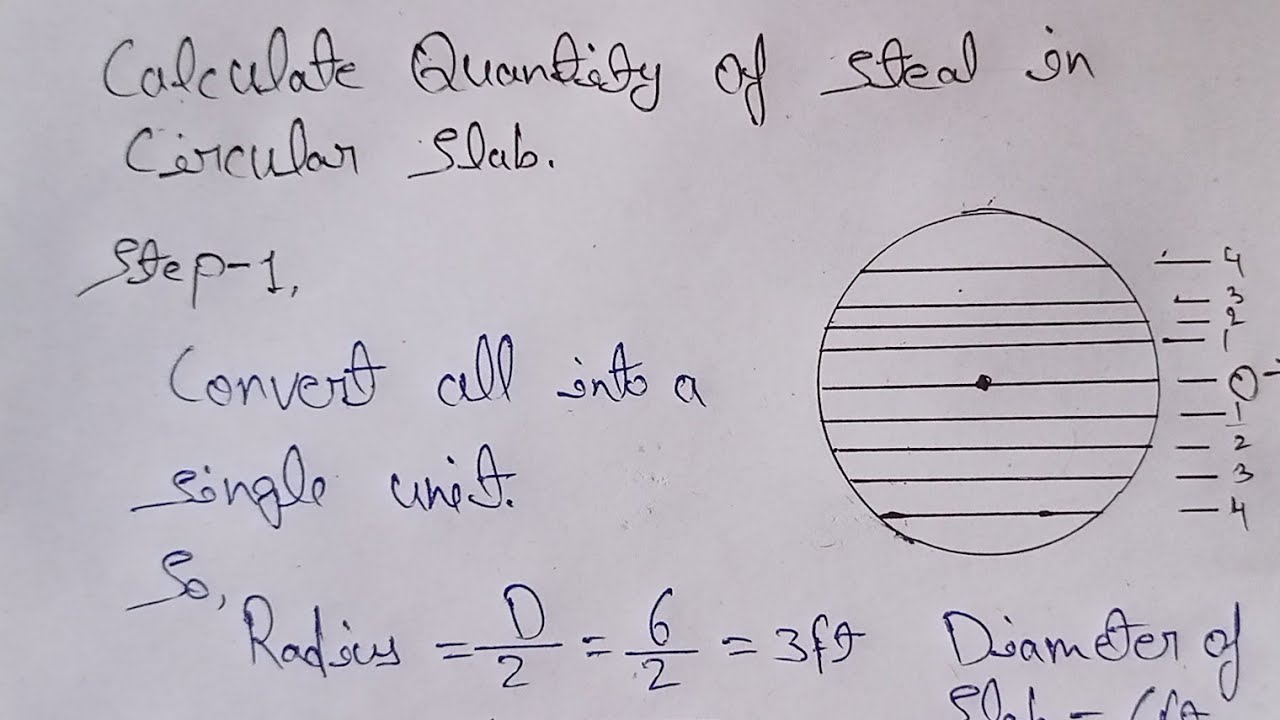 Calculate Quantity of Steal in
Circular Slab.
Step-1,
4
3
2
1
0
1
2
3
4
Convert all into a
single unit.
So,
Radius = D/2 = 6/2 = 3ft
Diameter of
Slab = 6ft